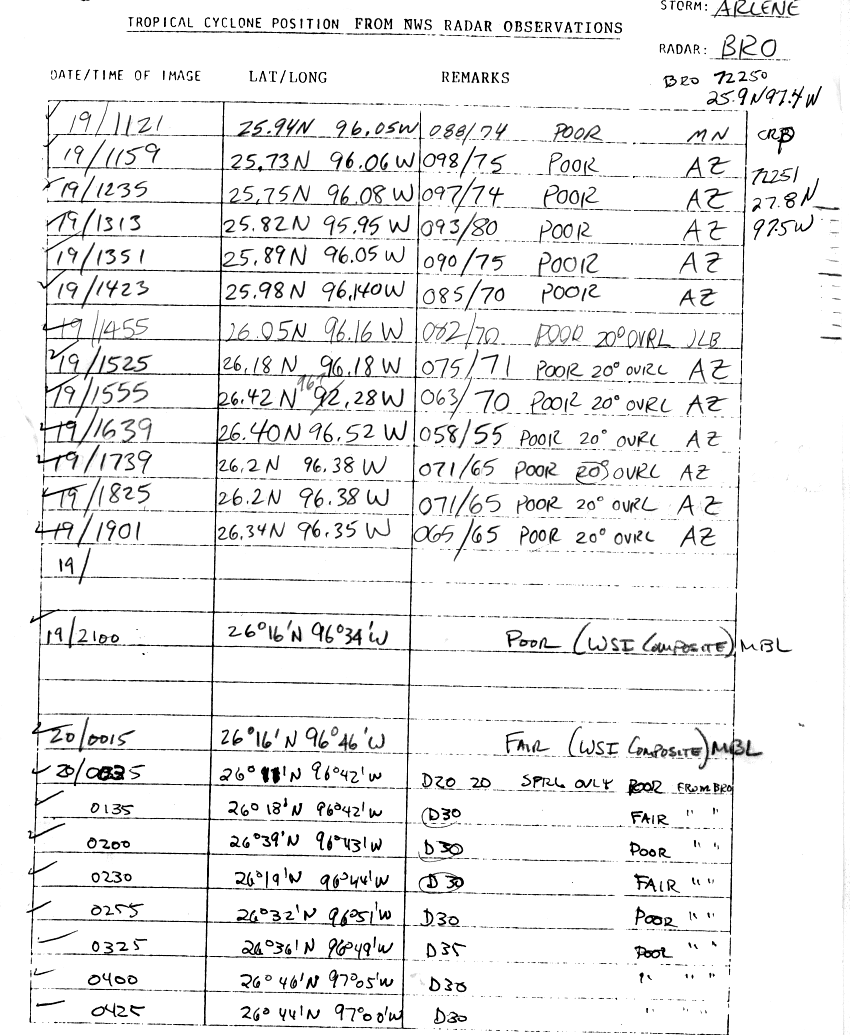 STORM: ARLENE
TROPICAL CYCLONE POSITION FROM NWS RADAR OBSERVATIONS
RADAR: BRO
DATE/TIME OF IMAGE LAT/LONG REMARKS
BRO 72250
25.9N 97.4W
19/1121 25.94N 96.05W 088/74 POOR MN
CRP
19/1159 25.73N 96.06W 098/75 POOR AZ
72251
19/1235 25.75N 96.08W 097/74 POOR AZ
27.8N
19/1313 25.82N 95.95W 093/80 POOR AZ
97.5W
19/1351 25.89N 96.05W 090/75 POOR AZ
19/1423 25.98N 96.140W 085/70 POOR AZ
19/1455 26.05N 96.16W 082/70 POOR 20° OVRL JLB
19/1525 26.18N 96.18W 075/71 POOR 20° OVRL AZ
19/1555 26.42N 96.28W 063/70 POOR 20° OVRL AZ
19/1639 26.40N 96.52W 058/55 POOR 20° OVRL AZ
19/1739 26.2N 96.38W 071/65 POOR 20° OVRL AZ
19/1825 26.2N 96.38W 071/65 POOR 20° OVRL AZ
19/1901 26.34N 96.35W 065/65 POOR 20° OVRL AZ
19/
19/2100 26°16'N 96°34'W POOR (WSI COMPOSITE) MBL
20/0015 26°16'N 96°46'W FAIR (WSI COMPOSITE) MBL
20/0035 26°11'N 96°42'W D20 20 SPRL ONLY POOR FROM BRO
0135 26°18'N 96°42'W D30 FAIR " "
0200 26°39'N 96°43'W D30 POOR " "
0230 26°19'N 96°44'W D30 FAIR " "
0255 26°32'N 96°51'W D30 POOR " "
0325 26°36'N 96°49'W D35 POOR " "
0400 26°46'N 97°05'W D30 " " "
0425 26°44'N 97°00'W D30 " " "